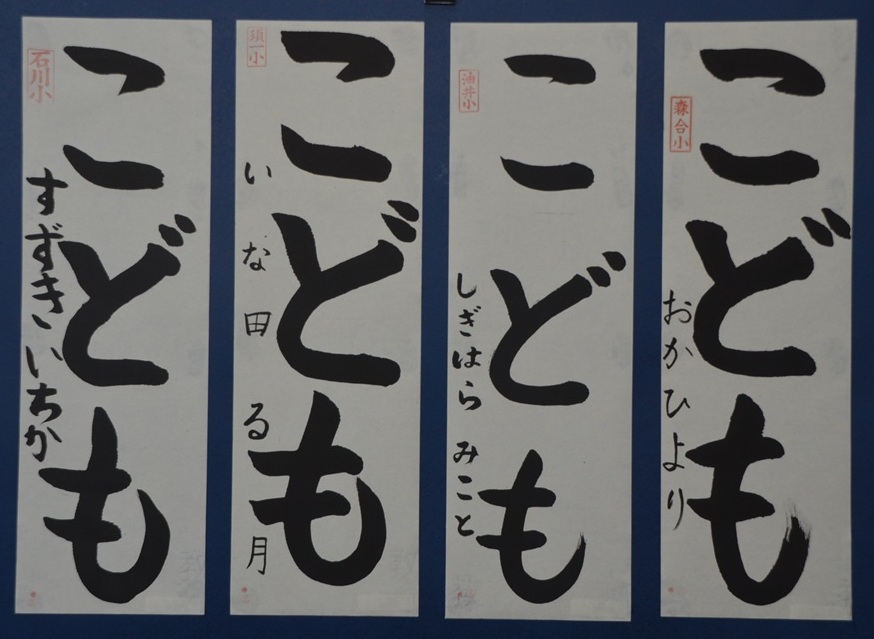 こども
森合小
おかひより
こども
油井小
しぎはら みこと
こども
須一小
いな田 る月
こども
石川小
すずき いちか